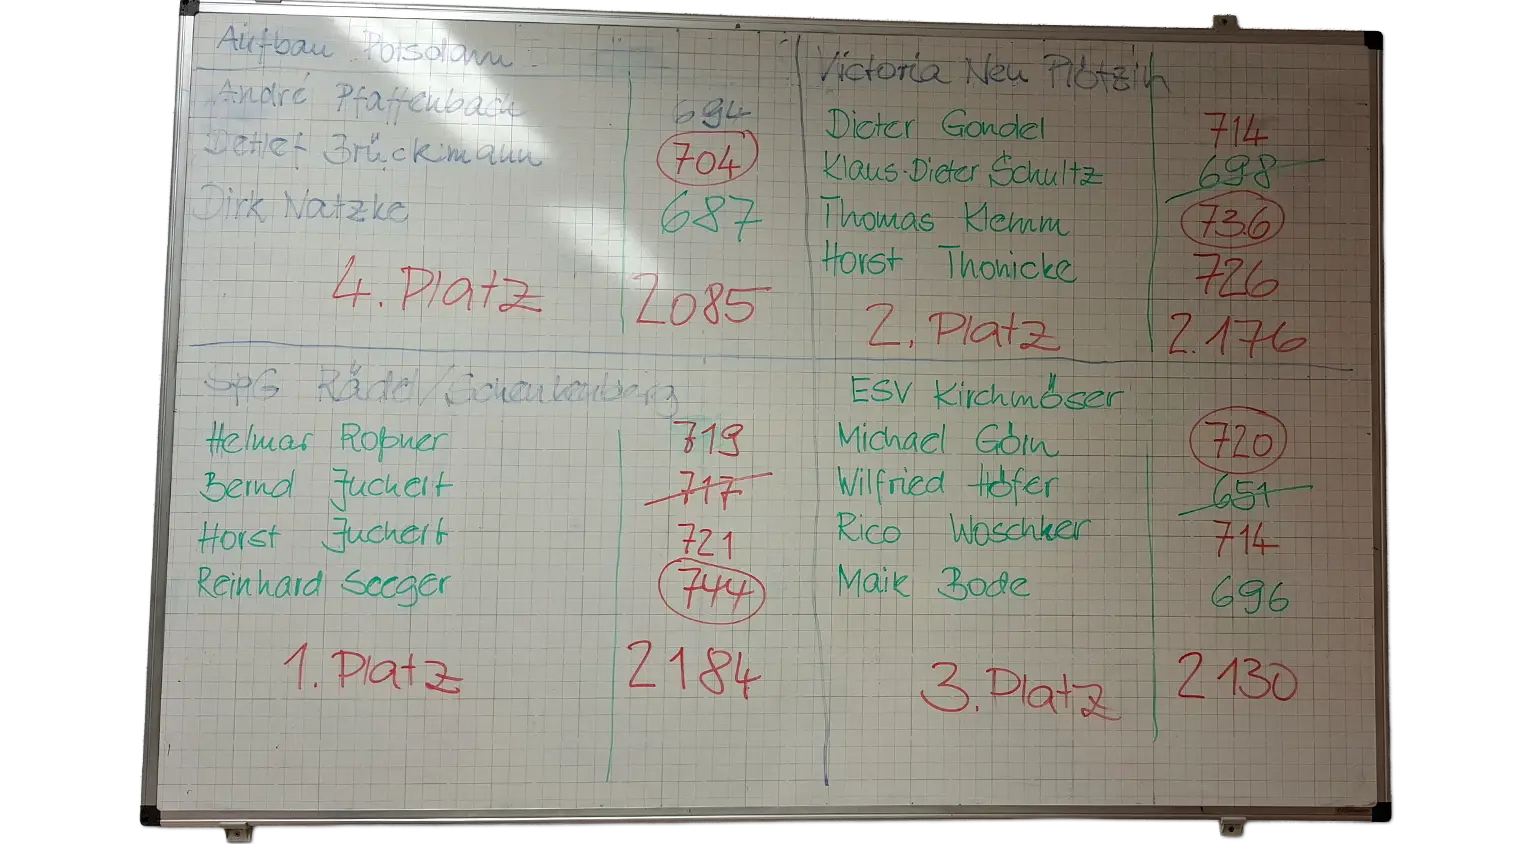 Aufbau Potsdam
André Pfaffenbach 694
Detlef Brückmann 704
Dirk Natzke 687
4. Platz 2085
Victoria Neu Plötzin
Dieter Gondel 714
Klaus-Dieter Schultz 698
Thomas Klemm 736
Horst Thonicke 726
2. Platz 2.176
SpG Rädel/Schenkenberg
Helmar Roßner 719
Bernd Juchert 717
Horst Juchert 721
Reinhard Seeger 744
1. Platz 2184
ESV Kirchmöser
Michael Görn 720
Wilfried Höfer 651
Rico Waschker 714
Maik Bode 696
3. Platz 2130